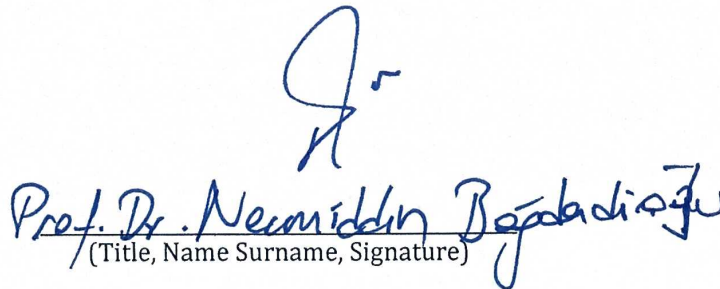 Prof. Dr. Necmiddin Bağdadioğlu
(Title, Name Surname, Signature)